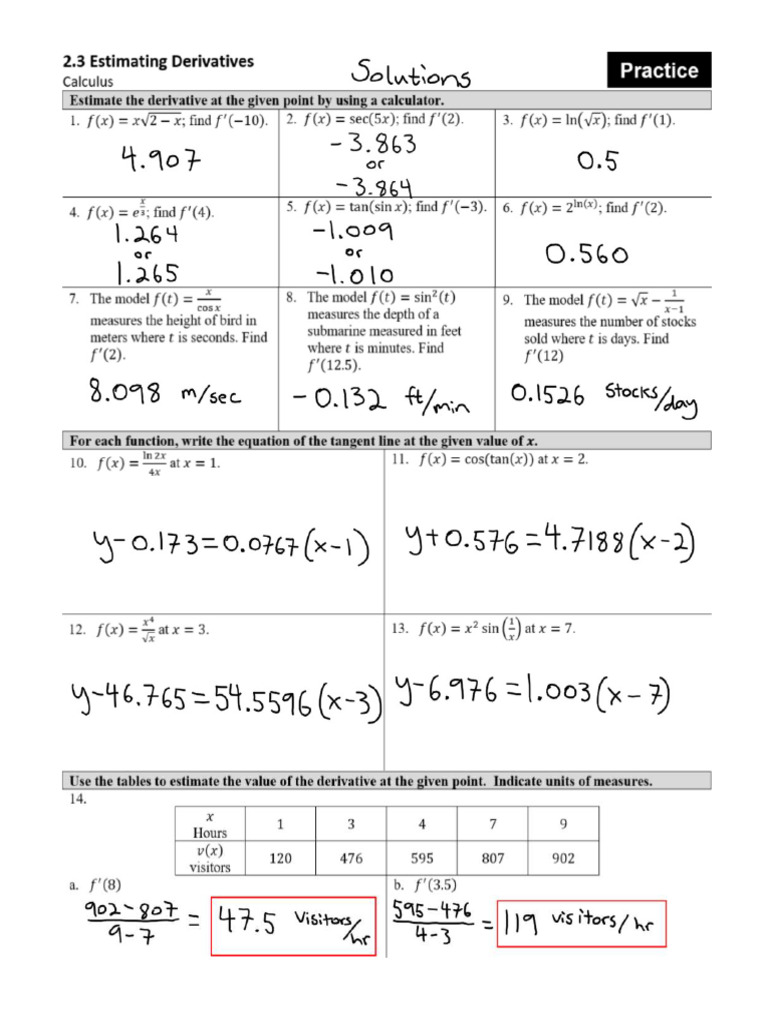 2.3 Estimating Derivatives
Calculus
Solutions
Practice
Estimate the derivative at the given point by using a calculator.
1. f(x) = x√(2 − x); find f′(−10).
4.907
2. f(x) = sec(5x); find f′(2).
−3.863
or
−3.864
3. f(x) = ln(√x); find f′(1).
0.5
4. f(x) = e^(x/3); find f′(4).
1.264
or
1.265
5. f(x) = tan(sin x); find f′(−3).
−1.009
or
−1.010
6. f(x) = 2^ln(x); find f′(2).
0.560
7. The model f(t) = x/cos x
measures the height of bird in
meters where t is seconds. Find
f′(2).
8.098 m/sec
8. The model f(t) = sin²(t)
measures the depth of a
submarine measured in feet
where t is minutes. Find
f′(12.5).
−0.132 ft/min
9. The model f(t) = √x − 1/(x−1)
measures the number of stocks
sold where t is days. Find
f′(12)
0.1526 Stocks/day
For each function, write the equation of the tangent line at the given value of x.
10. f(x) = ln 2x/4x at x = 1.
y−0.173=0.0767(x−1)
11. f(x) = cos(tan(x)) at x = 2.
y+0.576=4.7188(x−2)
12. f(x) = x⁴/√x at x = 3.
y−46.765=54.5596(x−3)
13. f(x) = x² sin(1/x) at x = 7.
y−6.976=1.003(x−7)
Use the tables to estimate the value of the derivative at the given point. Indicate units of measures.
14.
x Hours 1 3 4 7 9
v(x) visitors 120 476 595 807 902
a. f′(8)
(902−807)/(9−7) = 47.5 Visitors/hr
b. f′(3.5)
(595−476)/(4−3) = 119 visitors/hr